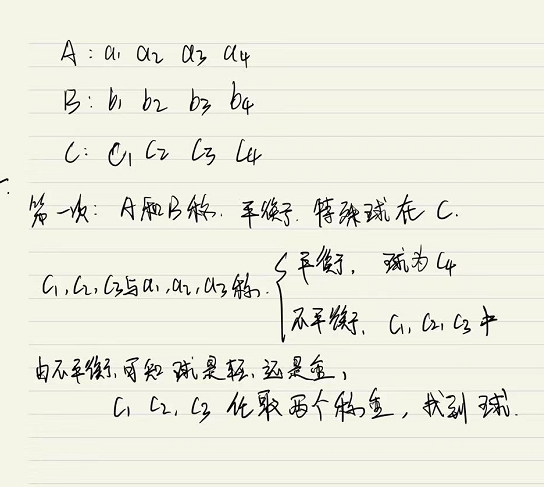 A: a1 a2 a3 a4
B: b1 b2 b3 b4
C: C1 C2 C3 C4
第一次: A和B称. 平衡. 特殊球在 C.
C1, C2, C3与a1, a2, a3称. { 平衡, 球为C4
不平衡, C1, C2, C3 中
由不平衡, 可知 球是轻, 还是重,
C1 C2, C3 任取两个称重, 找到球.